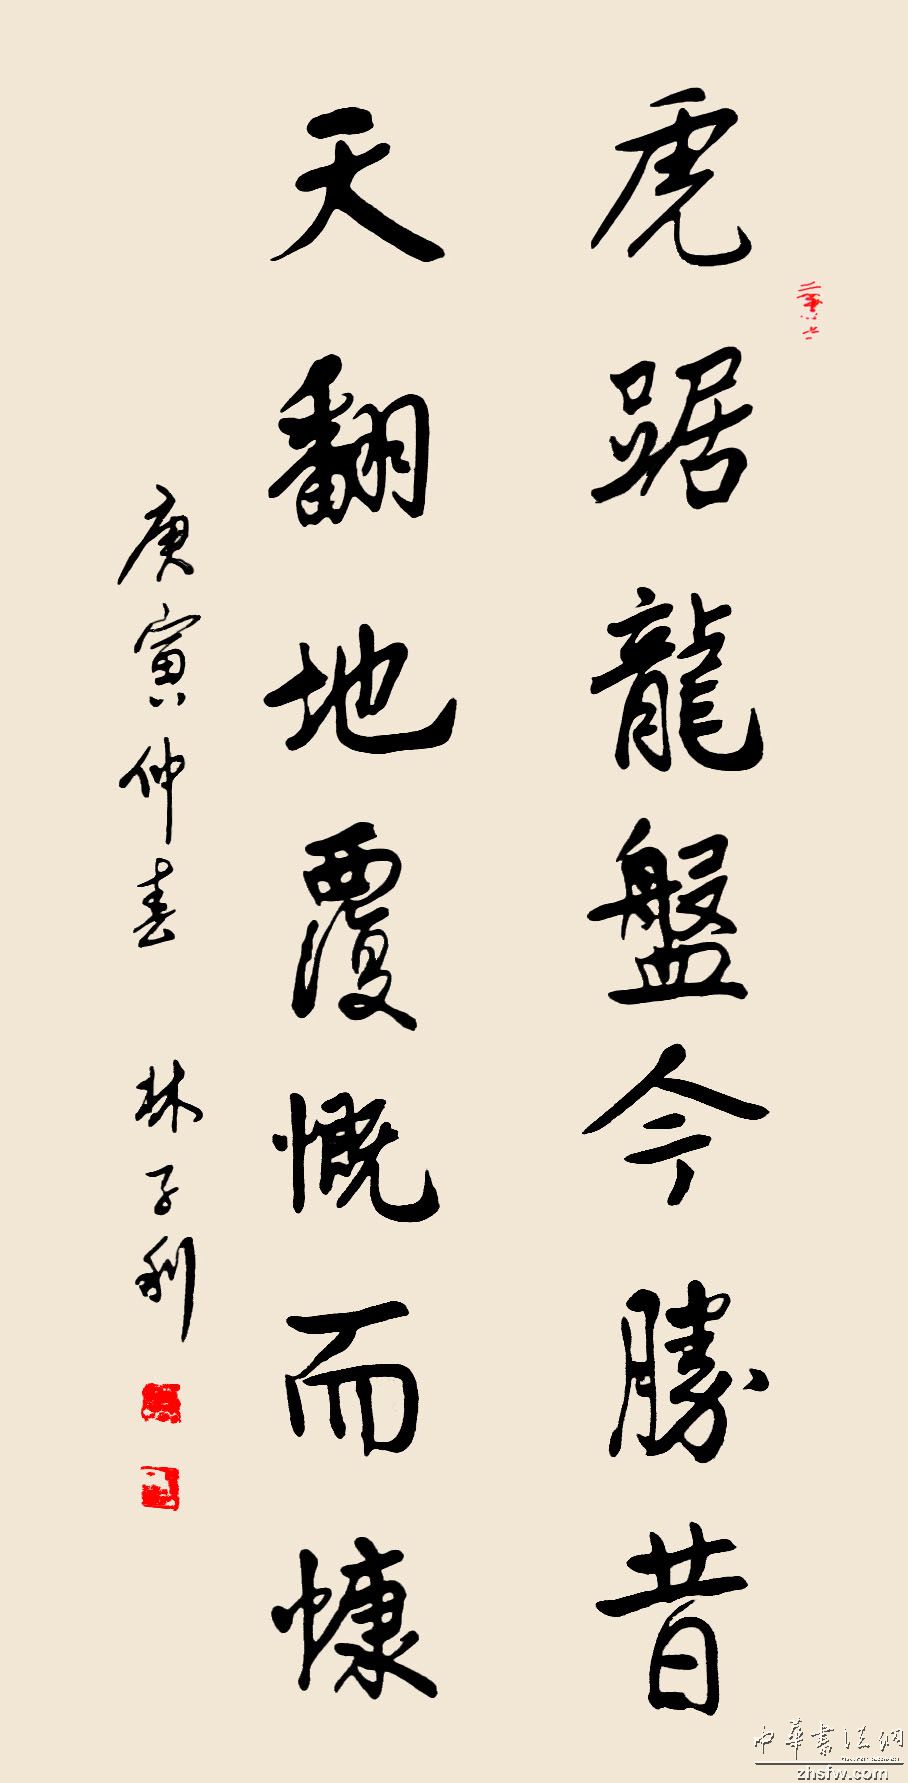 虎踞龍盤今勝昔
天翻地覆慨而慷
庚寅仲春 林子利
中華書法網
zhsfw.com